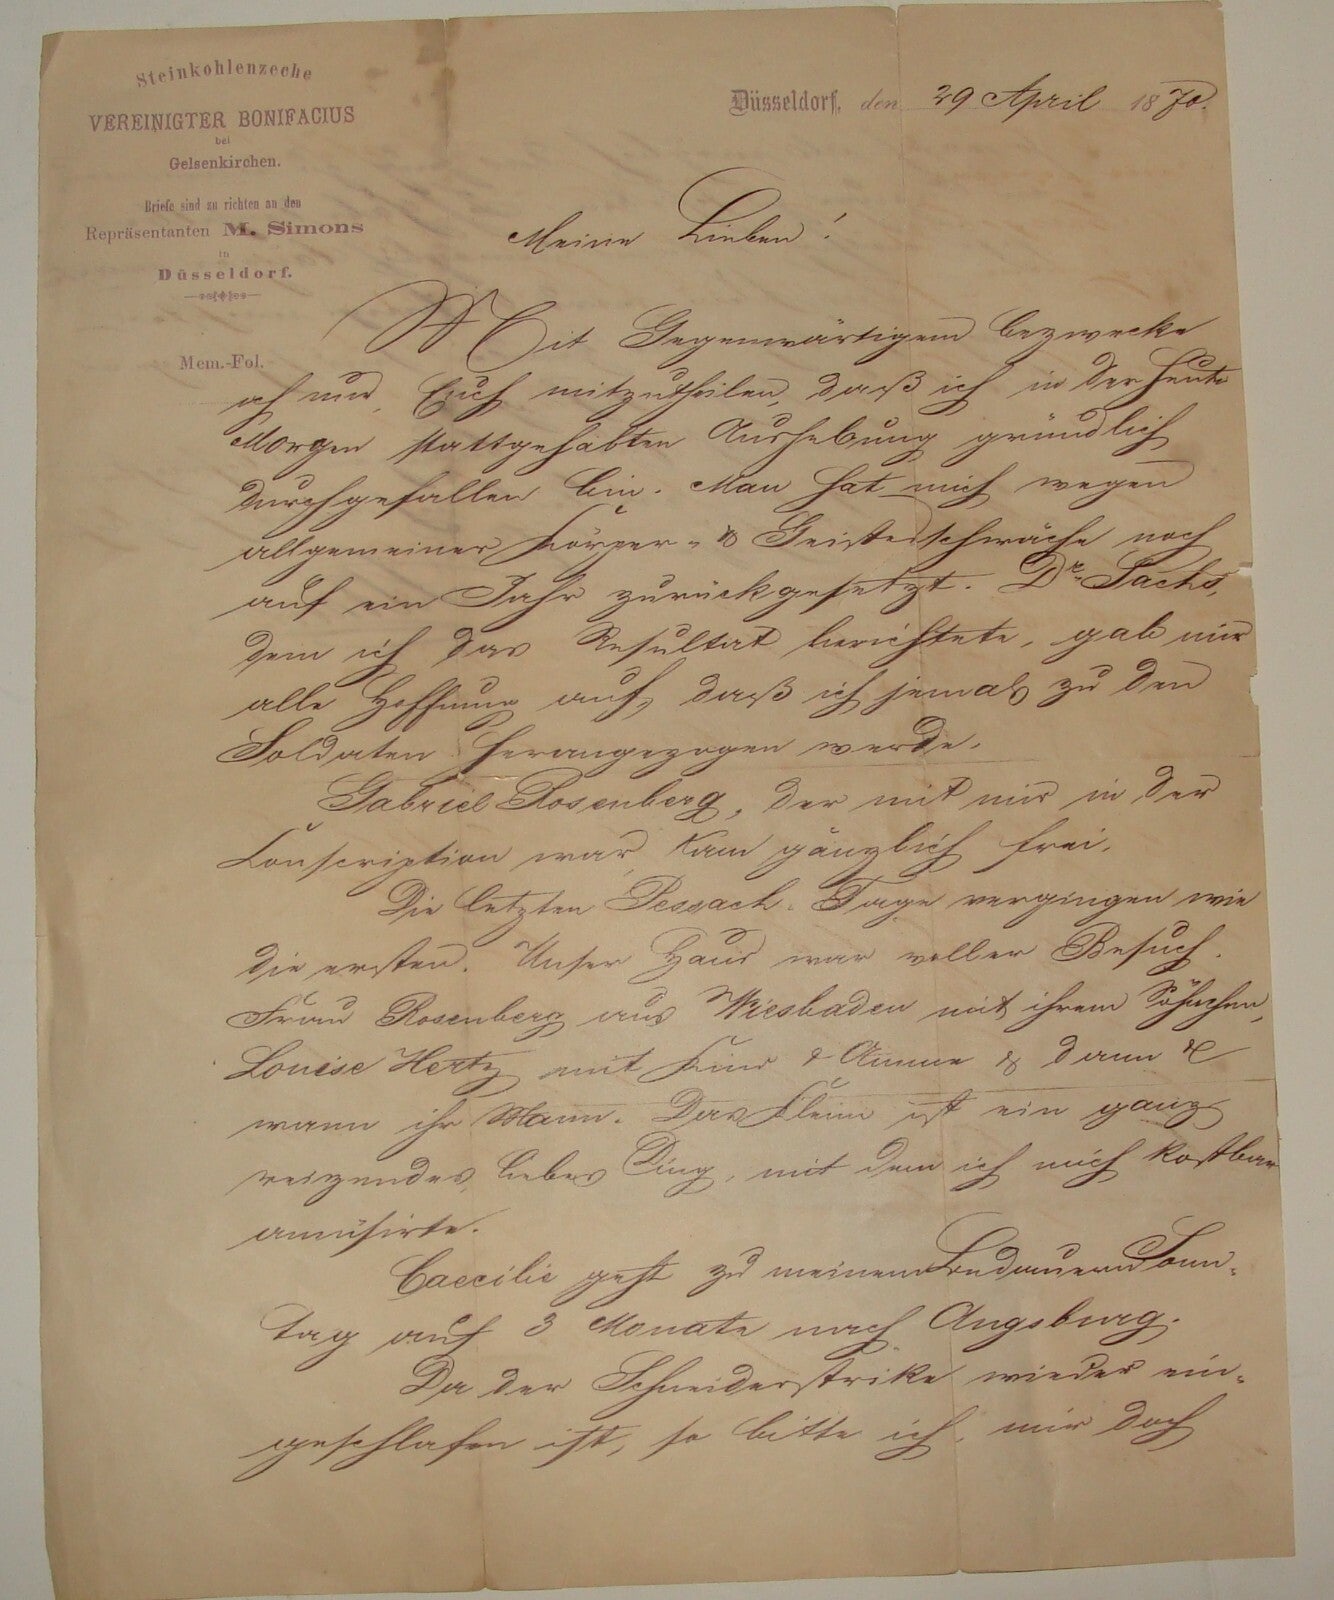 Steinkohlenzeche
VEREINIGTER BONIFACIUS
bei
Gelsenkirchen.
Briefe sind zu richten an den
Repräsentanten M. Simons
in
Düsseldorf.
Mem.-Fol.
Düsseldorf, den 29 April 1870.
Meine Lieben!
Mit Gegenwärtigem bezwecke
ich nur, Euch mitzutheilen, daß ich in der heute
Morgen stattgehabten Aushebung gründlich
durchgefallen bin. Man hat mich wegen
allgemeiner Körper- & Geistesschwäche noch
auf ein Jahr zurückgesetzt. Dr. Sachs,
dem ich das Resultat berichtete, gab mir
alle Hoffnung auf, daß ich jemals zu den
Soldaten herangezogen werde.
Gabriel Rosenberg, der mit mir in der
Conscription war, kam gänzlich frei.
Die letzten Pessach-Tage vergingen wie
die ersten. Unser Haus war voller Besuch.
Frau Rosenberg aus Wiesbaden mit ihrem Söhnchen,
Louise Hertz mit Kind & Amme & dann &
wann ihr Mann. Das Kleine ist ein ganz
reizendes, liebes Ding, mit dem ich mich kostbar
amüsirte.
Caecilie geht zu meinem Sonn-
tag auf 3 Monate nach Augsburg.
Da der Schneiderstrike wieder ein-
geschlafen ist, so bitte ich, mir doch